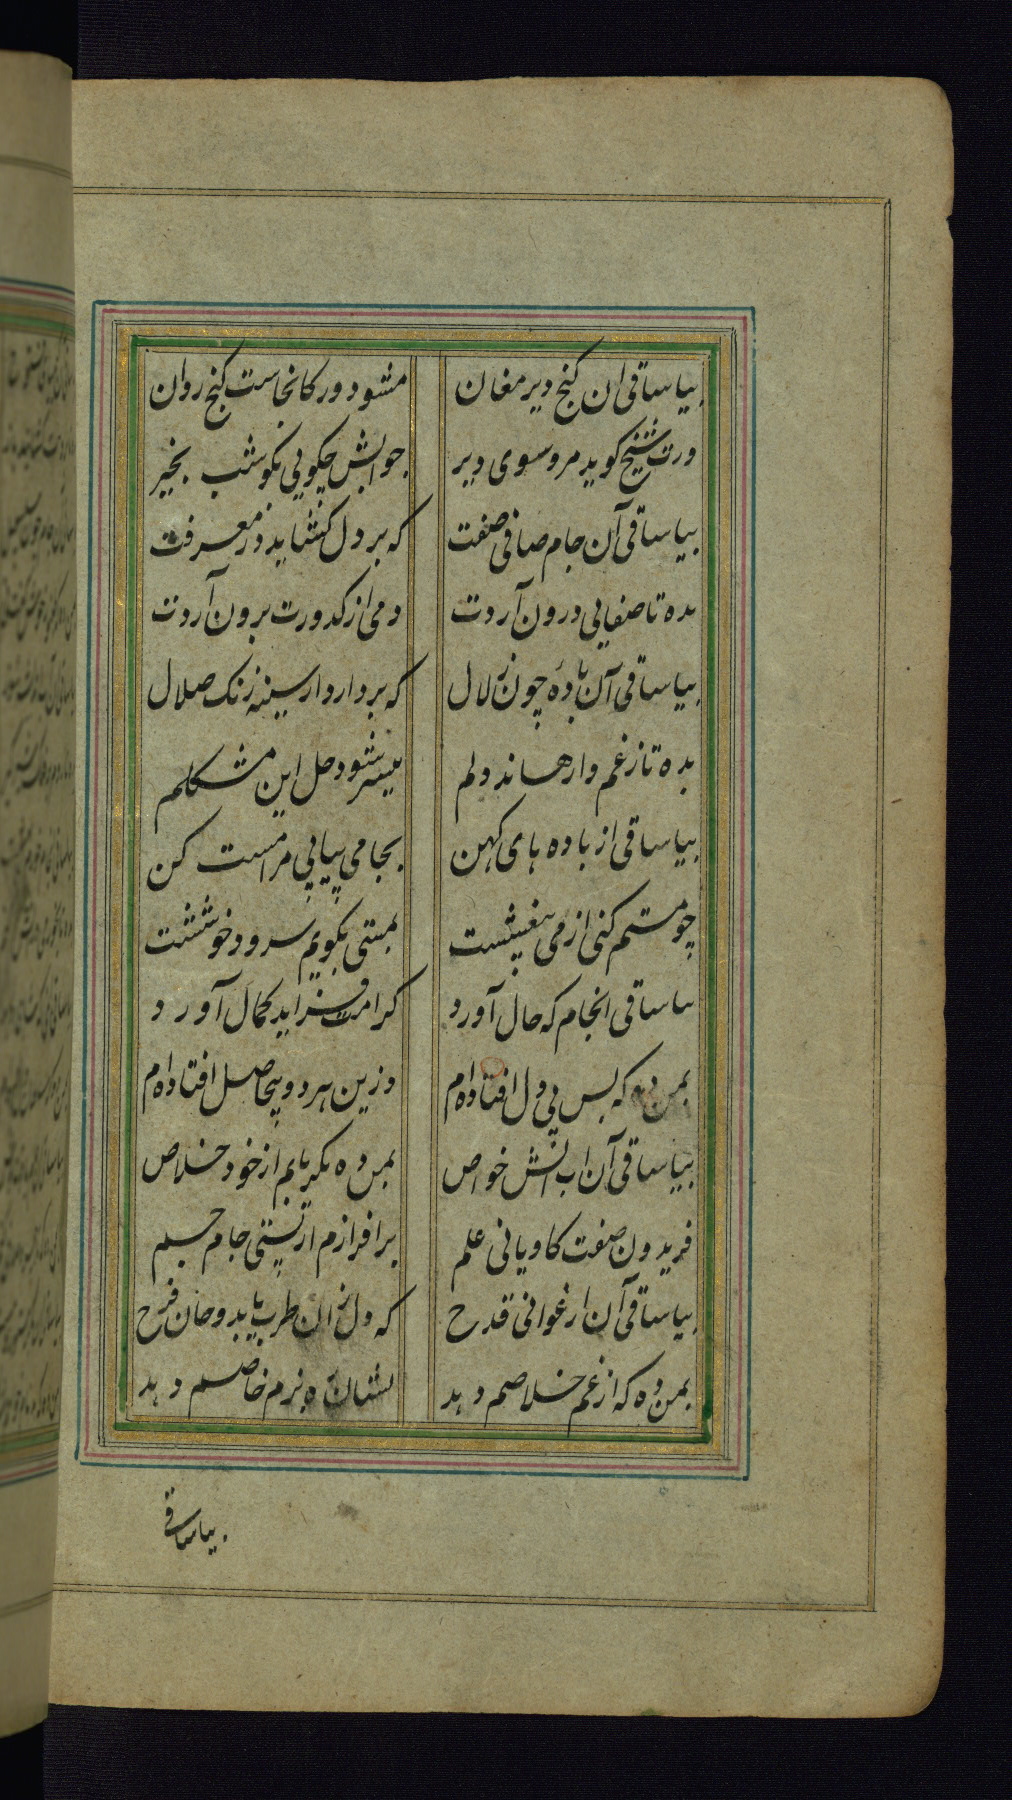 بیا ساقی ان کنج دیر مغان مشو دور کانجاست کنج روان
ورت شیخ کوید مرو سوی دیر جوابش چکویی بکو شب بخیر
بیا ساقی آن جام صافی صفت که بر دل کشاید در معرفت
بده تا صفایی درون آردت دمی از کدورت برون آردت
بیا ساقی آن بادهٔ چون زلال که بردارد از سینه زنک ضلال
بده تا ز غم وارهاند دلم میسر شود حل این مشکلم
بیا ساقی از باده های کهن بجامی پیاپی مرا مست کن
چو مستم کنی از می بیغشت بمستی بکویم سرود خوشت
بیا ساقی انجام که حال آورد کرامت فزاید کمال آورد
بمن ده که بس بی دل افتاده ام وزین هر دو بیحاصل افتاده ام
بیا ساقی آن اب اتش خواص بمن ده که یابم از خود خلاص
فریدون صفت کاویانی علم برافرازم از پستی جام جم
بیا ساقی آن ارغوانی قدح که دل زان طرب یابد و جان فرح
بمن ده که از غم خلاصم دهد نشان ره بزم خاصم دهد
بیا ساقی